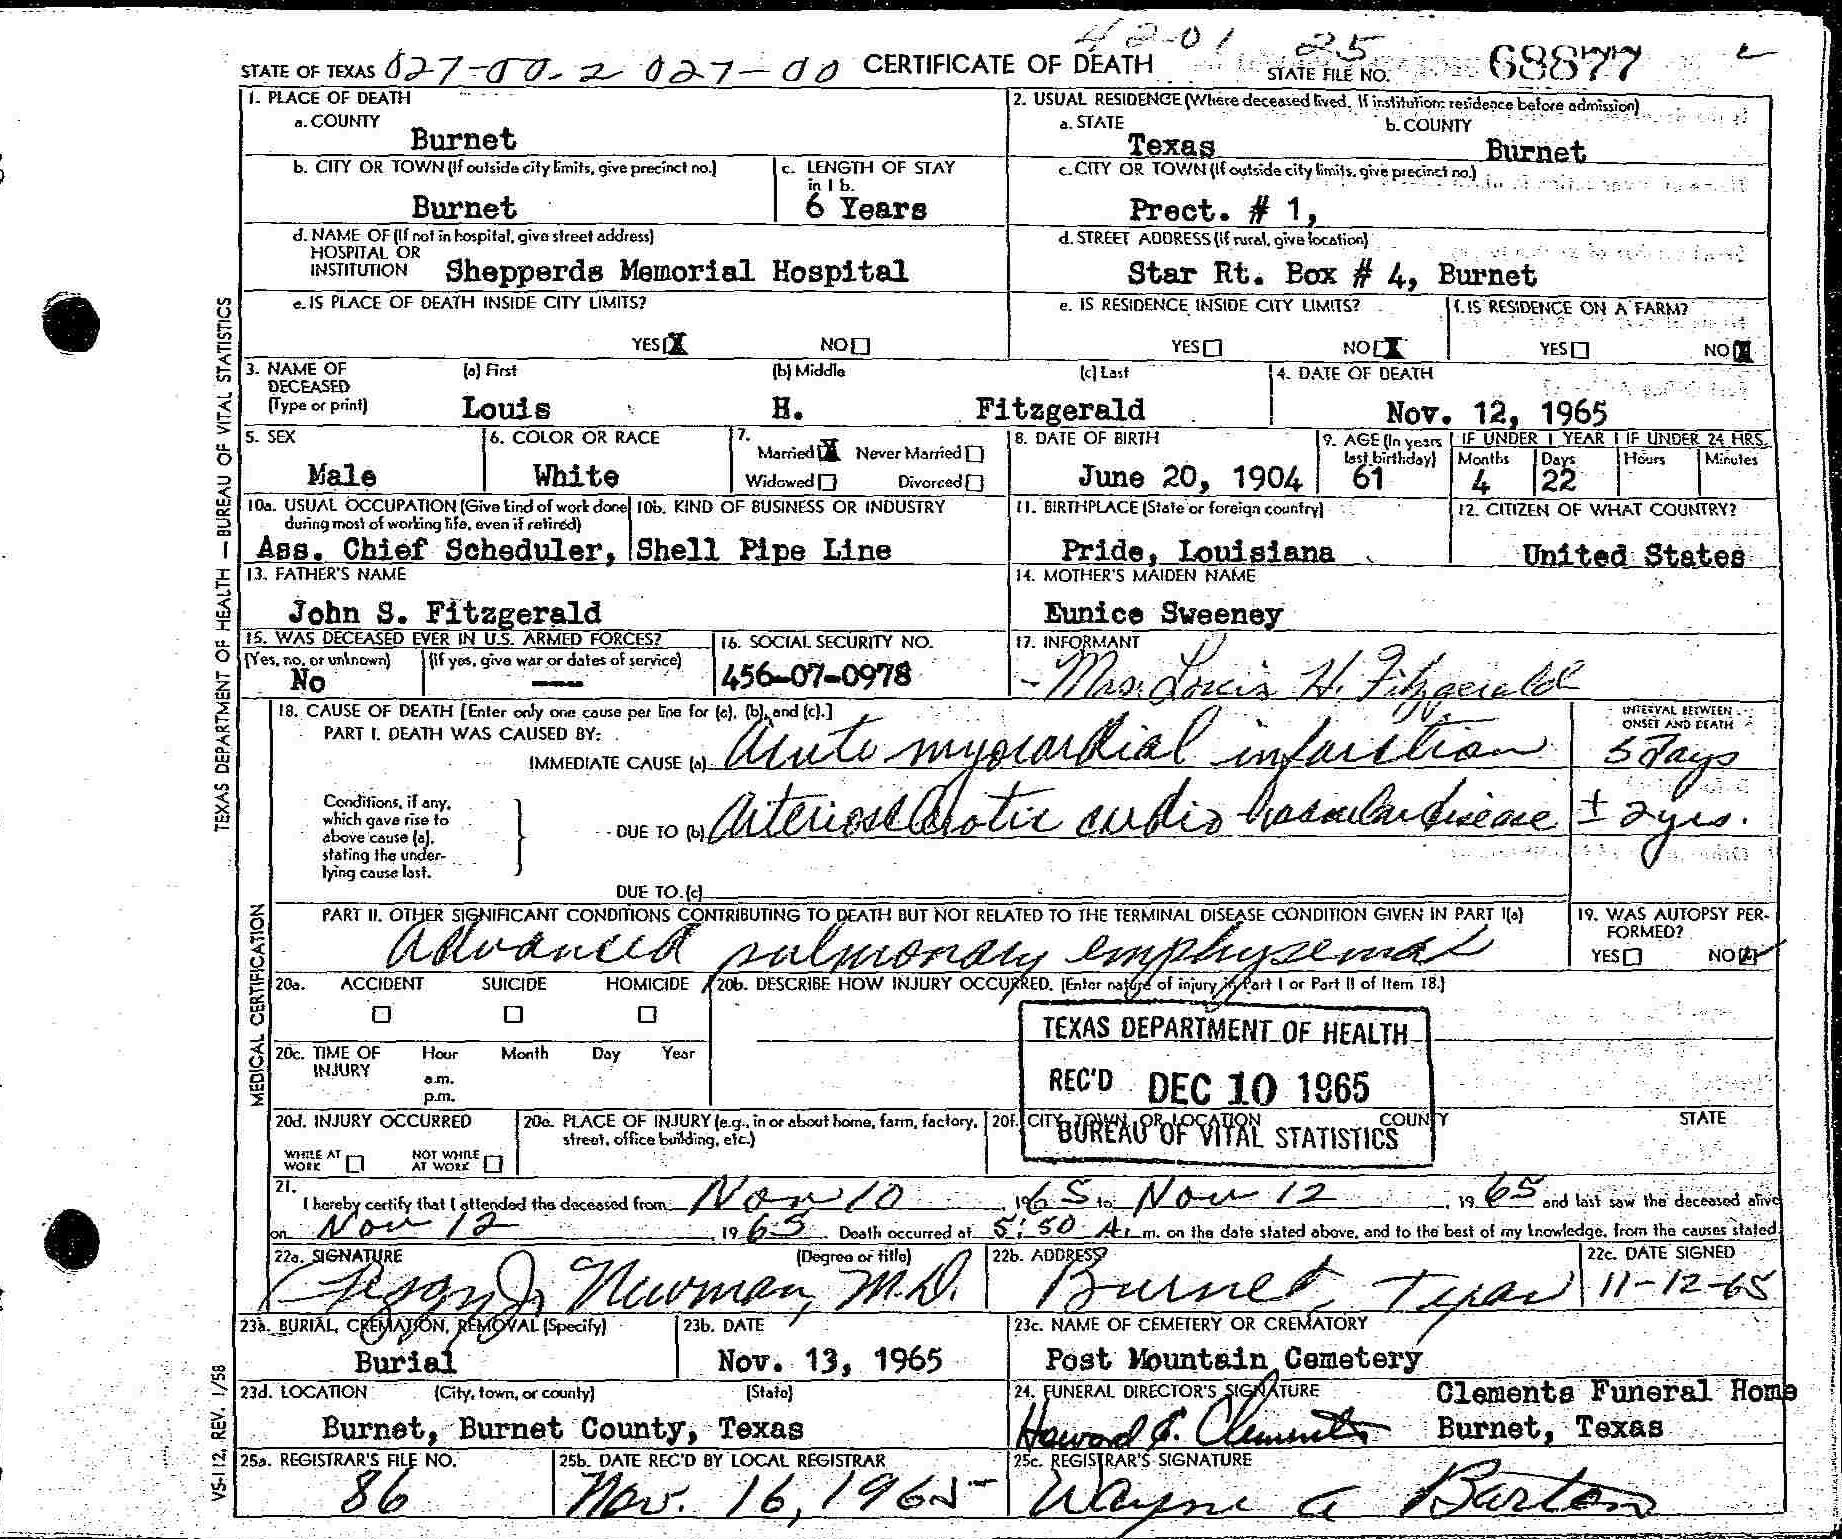 42-01 25
STATE OF TEXAS 027-00-2 027-00 CERTIFICATE OF DEATH STATE FILE NO. 68877
1. PLACE OF DEATH
a. COUNTY
Burnet
2. USUAL RESIDENCE (Where deceased lived. If institution: residence before admission)
a. STATE b. COUNTY
Texas Burnet
b. CITY OR TOWN (If outside city limits, give precinct no.)
Burnet
c. LENGTH OF STAY
in 1 b.
6 Years
c. CITY OR TOWN (If outside city limits, give precinct no.)
Prect. # 1,
d. NAME OF (If not in hospital, give street address)
HOSPITAL OR
INSTITUTION Shepperds Memorial Hospital
d. STREET ADDRESS (If rural, give location)
Star Rt. Box # 4, Burnet
e. IS PLACE OF DEATH INSIDE CITY LIMITS?
YES X NO
e. IS RESIDENCE INSIDE CITY LIMITS?
YES NO X
f. IS RESIDENCE ON A FARM?
YES NO X
3. NAME OF
DECEASED
(Type or print)
(a) First (b) Middle (c) Last
Louis H. Fitzgerald
4. DATE OF DEATH
Nov. 12, 1965
5. SEX
Male
6. COLOR OR RACE
White
7.
Married X Never Married
Widowed Divorced
8. DATE OF BIRTH
June 20, 1904
9. AGE (In years
last birthday)
61
IF UNDER 1 YEAR IF UNDER 24 HRS.
Months Days Hours Minutes
4 22
10a. USUAL OCCUPATION (Give kind of work done
during most of working life, even if retired)
Ass. Chief Scheduler,
10b. KIND OF BUSINESS OR INDUSTRY
Shell Pipe Line
11. BIRTHPLACE (State or foreign country)
Pride, Louisiana
12. CITIZEN OF WHAT COUNTRY?
United States
13. FATHER'S NAME
John S. Fitzgerald
14. MOTHER'S MAIDEN NAME
Eunice Sweeney
15. WAS DECEASED EVER IN U.S. ARMED FORCES?
(Yes, no, or unknown) (If yes, give war or dates of service)
No ----
16. SOCIAL SECURITY NO.
456-07-0978
17. INFORMANT
- Mrs. Louis H. Fitzgerald
18. CAUSE OF DEATH [Enter only one cause per line for (a), (b), and (c).]
PART I. DEATH WAS CAUSED BY:
IMMEDIATE CAUSE (a) Acute myocardial infarction
INTERVAL BETWEEN
ONSET AND DEATH
5 days
Conditions, if any,
which gave rise to
above cause (a),
stating the under-
lying cause last.
DUE TO (b) Arteriosclerotic cardio vascular disease ± 2 yrs.
DUE TO (c)
PART II. OTHER SIGNIFICANT CONDITIONS CONTRIBUTING TO DEATH BUT NOT RELATED TO THE TERMINAL DISEASE CONDITION GIVEN IN PART I(a)
Advanced pulmonary emphysema
19. WAS AUTOPSY PER-
FORMED?
YES NO X
20a. ACCIDENT SUICIDE HOMICIDE
20b. DESCRIBE HOW INJURY OCCURRED. (Enter nature of injury in Part I or Part II of Item 18.)
20c. TIME OF
INJURY
Hour Month Day Year
a.m.
p.m.
TEXAS DEPARTMENT OF HEALTH
REC'D DEC 10 1965
BUREAU OF VITAL STATISTICS
20d. INJURY OCCURRED
WHILE AT
WORK
NOT WHILE
AT WORK
20e. PLACE OF INJURY (e.g., in or about home, farm, factory,
street, office building, etc.)
20f. CITY, TOWN, OR LOCATION COUNTY STATE
21.
I hereby certify that I attended the deceased from Nov 10, 1965 to Nov 12, 1965 and last saw the deceased alive
on Nov 12 1965. Death occurred at 5:50 A. m. on the date stated above, and to the best of my knowledge, from the causes stated.
22a. SIGNATURE (Degree or title)
Newman, M.D.
22b. ADDRESS
Burnet, Texas
22c. DATE SIGNED
11-12-65
23a. BURIAL, CREMATION, REMOVAL (Specify)
Burial
23b. DATE
Nov. 13, 1965
23c. NAME OF CEMETERY OR CREMATORY
Post Mountain Cemetery
23d. LOCATION (City, town, or county) (State)
Burnet, Burnet County, Texas
24. FUNERAL DIRECTOR'S SIGNATURE
Howard E. Clements
Clements Funeral Home
Burnet, Texas
25a. REGISTRAR'S FILE NO.
86
25b. DATE REC'D BY LOCAL REGISTRAR
Nov. 16, 1965
25c. REGISTRAR'S SIGNATURE
Wayne A Barton
TEXAS DEPARTMENT OF HEALTH — BUREAU OF VITAL STATISTICS
MEDICAL CERTIFICATION
VS-112, REV. 1/58